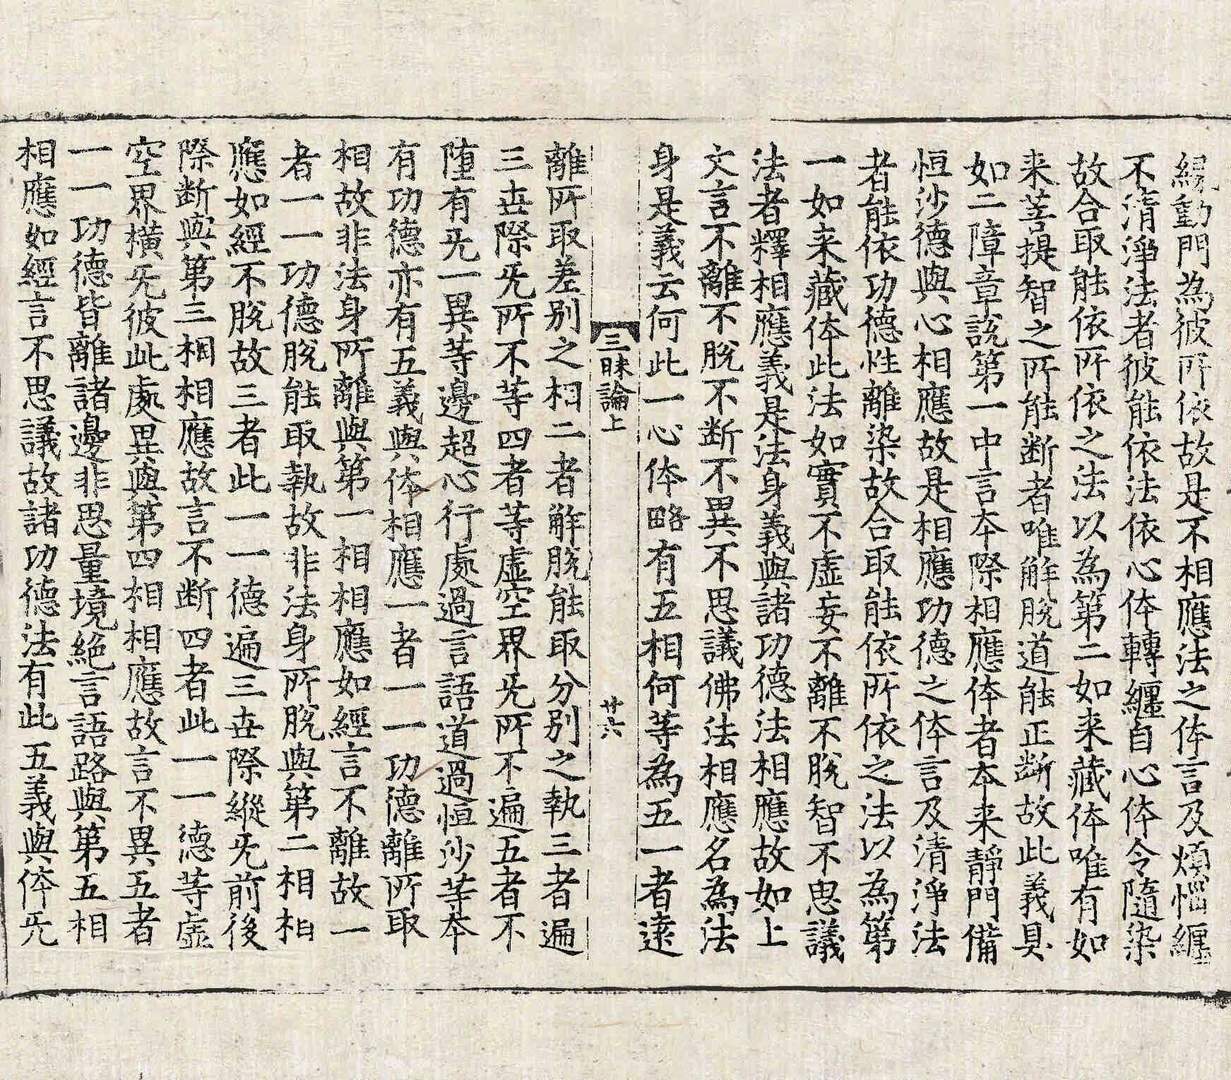 緣動門為彼所依故是不相應法之体言及煩惱纏
不清淨法者彼能依法依心体轉纏自心体令隨染
故合取能依所依之法以為第二如来藏体唯有如
来菩提智之所能断者唯解脫道能正断故此義具
如二障章說第一中言本際相應体者本来靜門備
恒沙德與心相應故是相應功德之体言及清淨法
者能依功德性離染故合取能依所依之法以為第
一如来藏体此法如實不虛妄不離不脫智不思議
法者釋相應義是法身義與諸功德法相應故如上
文言不離不脫不断不異不思議佛法相應名為法
身是義云何此一心体略有五相何等為五一者遠
三昧論上 廿六
離所取差别之相二者解脫能取分别之執三者遍
三世際旡所不等四者等虛空界旡所不遍五者不
墮有旡一異等邊超心行處過言語道過恒沙等本
有功德亦有五義與体相應一者一一功德離所取
相故非法身所離與第一相相應如經言不離故一
者一一功德脫能取執故非法身所脫與第二相相
應如經不脫故三者此一一德遍三世際縱旡前後
際断與第三相相應故言不断四者此一一德等虛
空界橫旡彼此處異與第四相相應故言不異五者
一一功德皆離諸邊非思量境絕言語路與第五相
相應如經言不思議故諸功德法有此五義與体旡